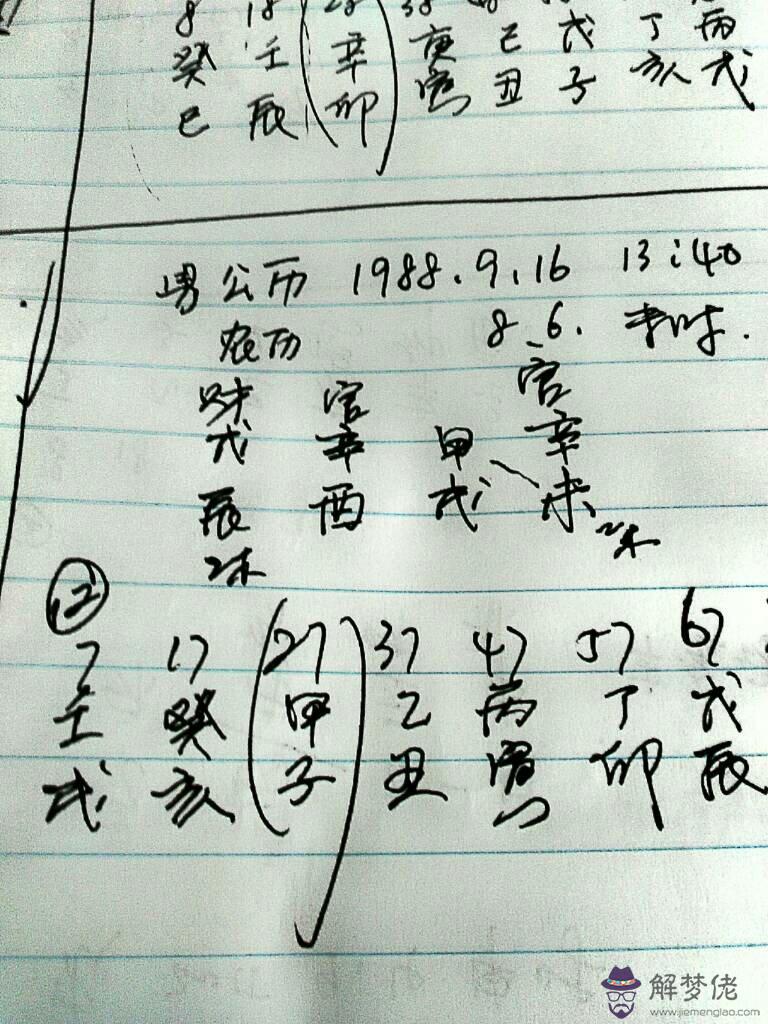 8 18 28 38
癸 壬 辛 庚 己 戊 丁 丙
巳 辰 卯 寅 丑 子 亥 戌
男 公历 1988.9.16 13:40
农历 8.6. 未时.
财 官 官
戊 辛 甲 辛
辰 酉 戌 未
②
7 17 27 37 47 57 67
壬 癸 甲 乙 丙 丁 戊
戌 亥 子 丑 寅 卯 辰
解梦佬
www.jiemenglao.com